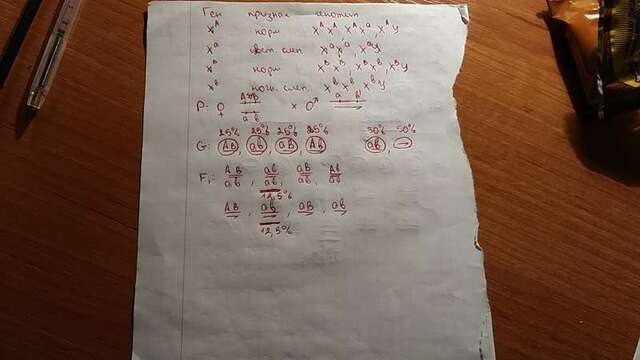 Ген признак генотип
X^A норм X^A X^A, X^A X^a, X^A Y
X^a цвет. слеп X^a X^a, X^a Y
X^B норм. X^B X^B, X^B X^b, X^B Y
X^b ночн. слеп. X^b X^b, X^b Y
P: ♀ AB/ab × ♂ ab
25% 25% 25% 25% 50%
G: AB, ab, aB, Ab ab,
F₁: AB/ab, ab/ab, aB/ab, Ab/ab
12,5%
AB, ab, aB,
12,5%